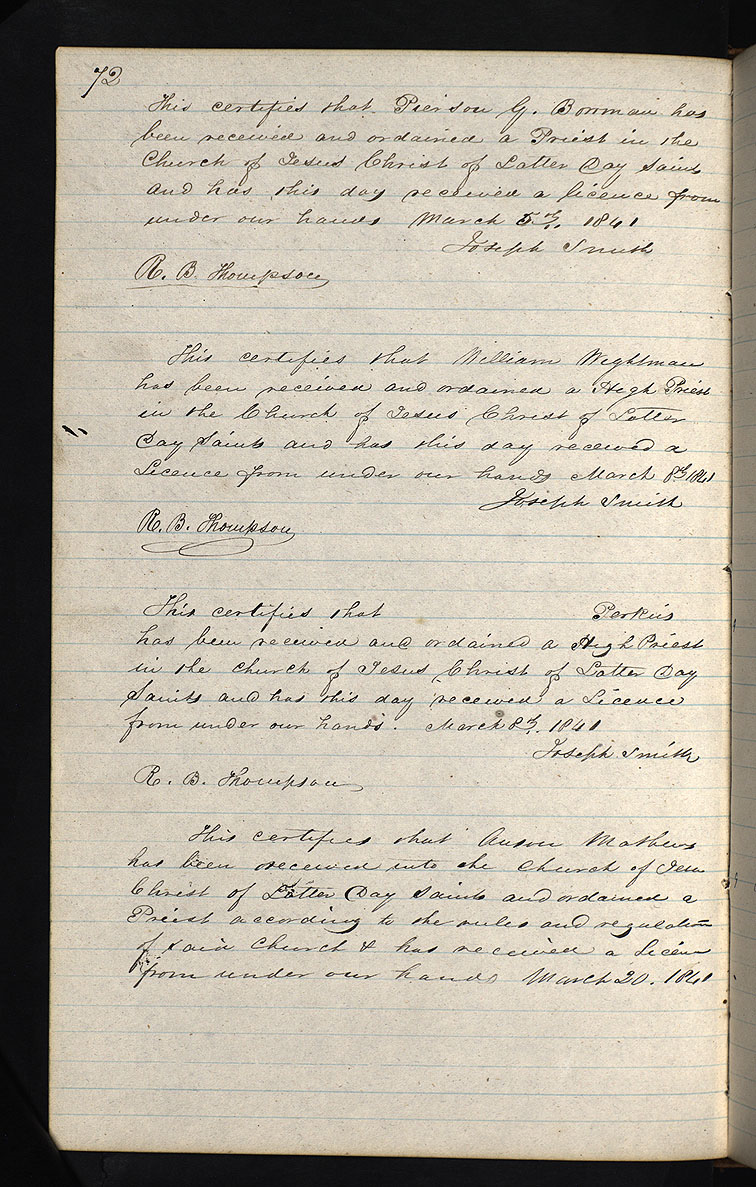 72
This certifies that Pierson G. Bowman has
been received and ordained a Priest in the
Church of Jesus Christ of Latter Day Saints
and has this day received a licence from
under our hands March 5th. 1841
Joseph Smith
R. B. Thompson
This certifies that William Wightman
has been received and ordained a High Priest
in the Church of Jesus Christ of Latter
Day Saints and has this day received a
Licence from under our hands March 8th 1841
Joseph Smith
R. B. Thompson
This certifies that Perkins
has been received and ordained a High Priest
in the church of Jesus Christ of Latter Day
Saints and has this day received a Licence
from under our hands. March 8th. 1841
Joseph Smith
R. B. Thompson
This certifies that Anson Mathews
has been received into the Church of Jesu
Christ of Latter Day Saints and ordained a
Priest according to the rules and regulation
of said Church & has received a Licen
from under our hands March 20. 1841